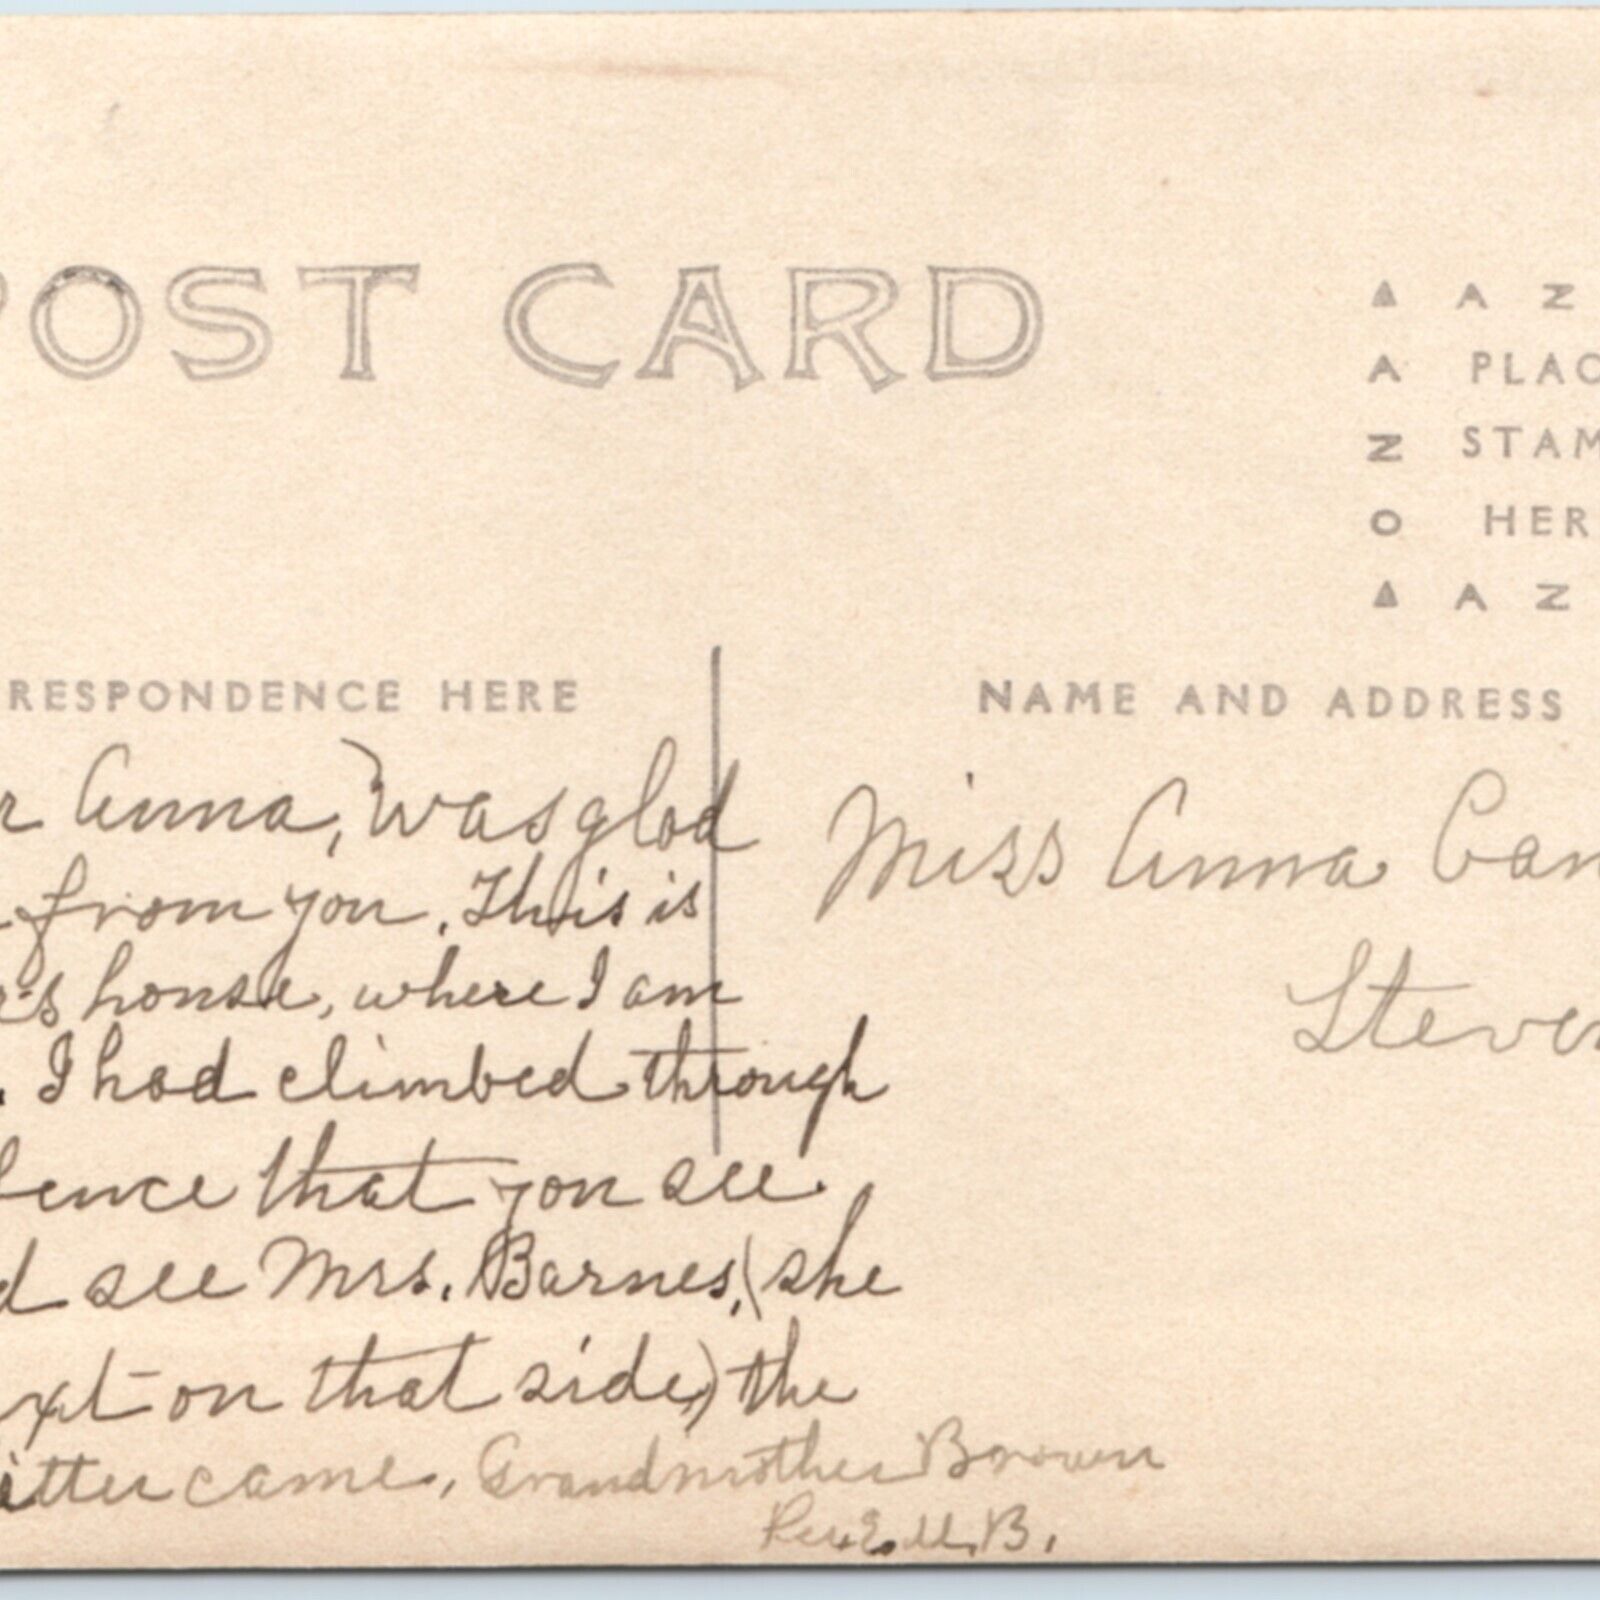 POST CARD
▲ A Z
A PLAC
Z STAM
O HER
▲ A Z
RESPONDENCE HERE
NAME AND ADDRESS
r Anna, Was glad
from you. This is
's house, where I am
. I had climbed through
fence that you see
d see Mrs. Barnes, (she
ext on that side,) the
itter came, Grandmother Brown
B.
Miss Anna Can
Steven